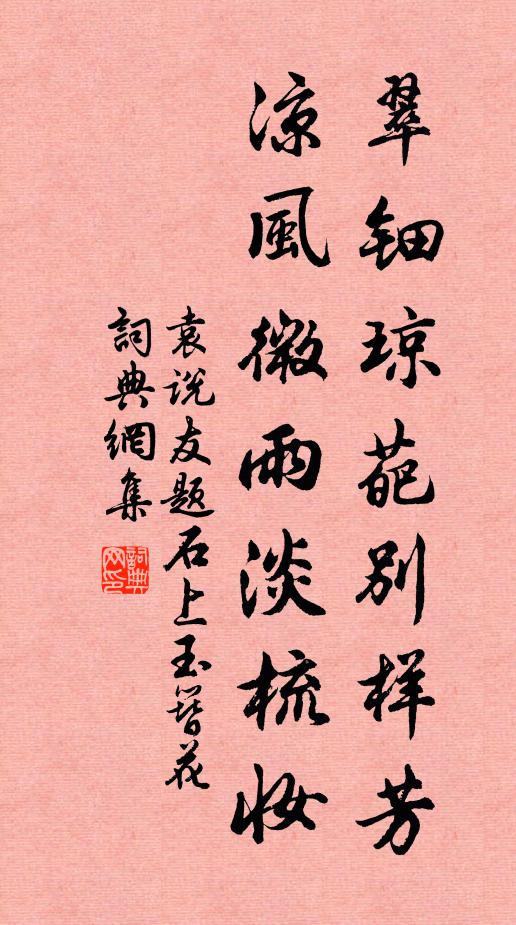 翠鈿琼葩别样芳
凉風微雨淡梳妆
袁说友题石上玉簪花
詞典網集
詞典网印